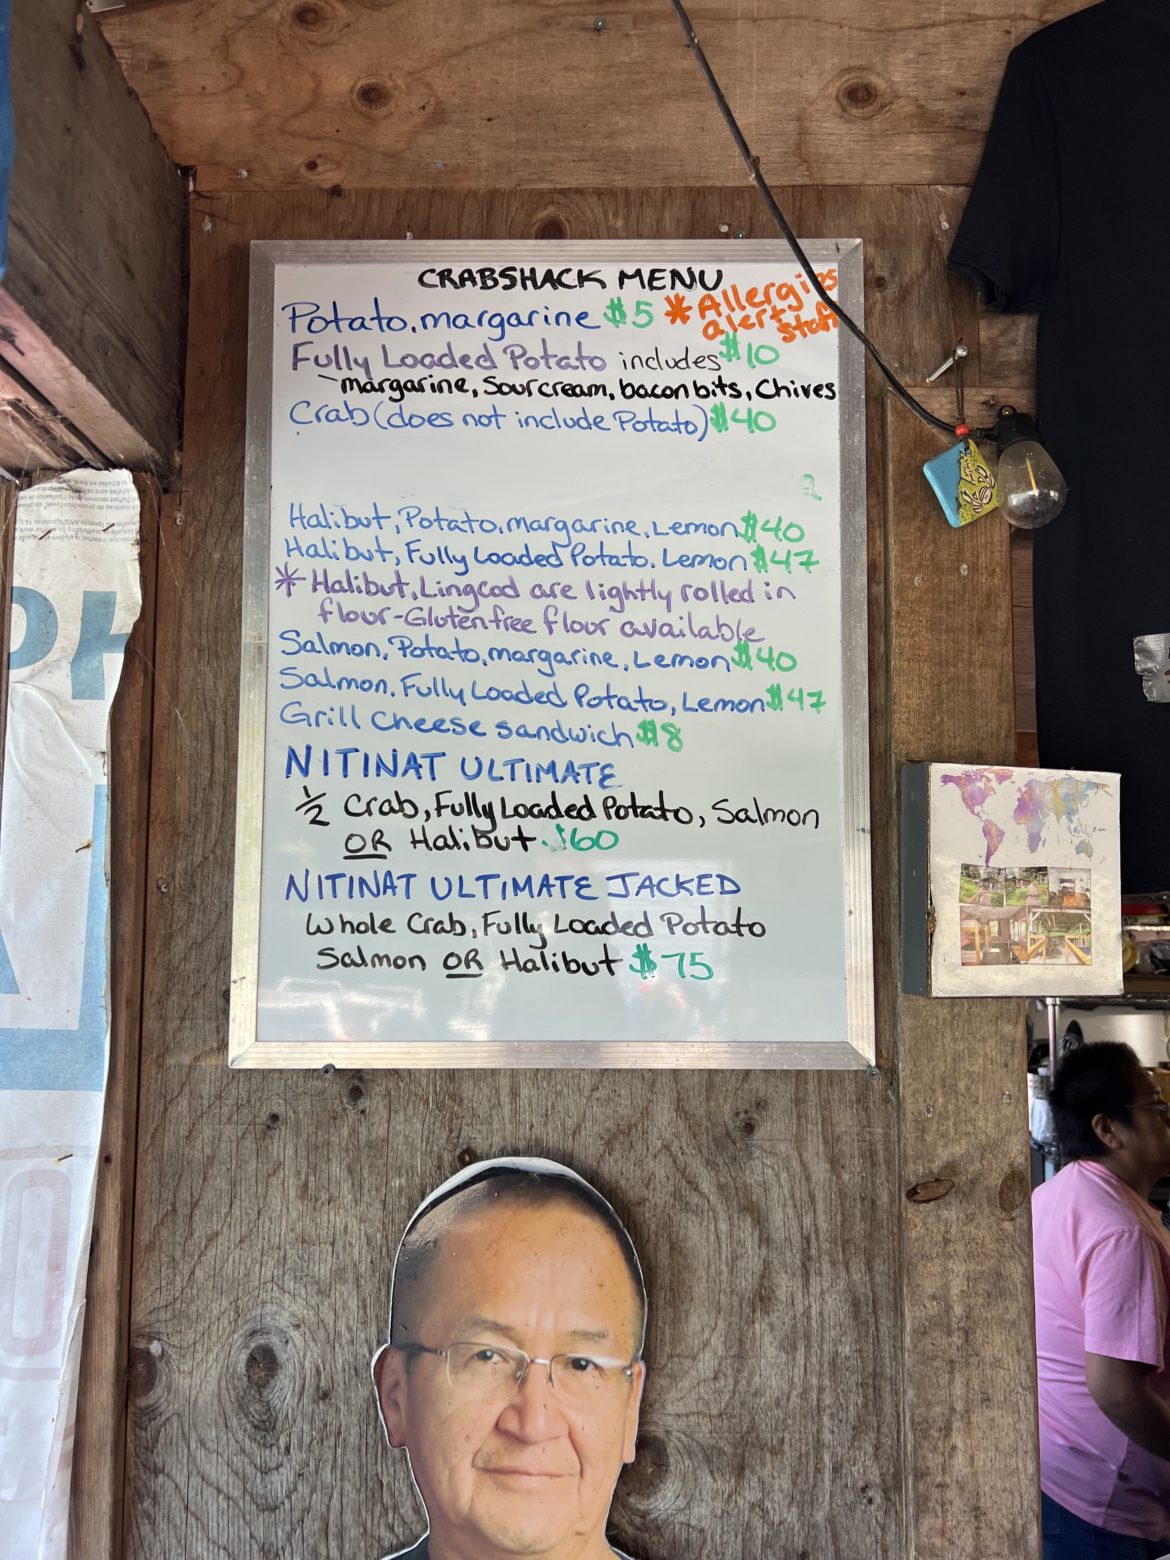 CRABSHACK MENU
Potato, margarine $5 * Allergies
alert
staff
Fully Loaded Potato includes $10
margarine, Sour cream, bacon bits, Chives
Crab (does not include Potato) $40
2
Halibut, Potato, margarine, Lemon $40
Halibut, Fully Loaded Potato, Lemon $47
* Halibut, Lingcod are lightly rolled in
flour - Gluten free flour available
Salmon, Potato, margarine, Lemon $40
Salmon, Fully Loaded Potato, Lemon $47
Grill cheese sandwich $8
NITINAT ULTIMATE
1/2 Crab, Fully Loaded Potato, Salmon
OR Halibut $60
NITINAT ULTIMATE JACKED
Whole Crab, Fully Loaded Potato
Salmon OR Halibut $75